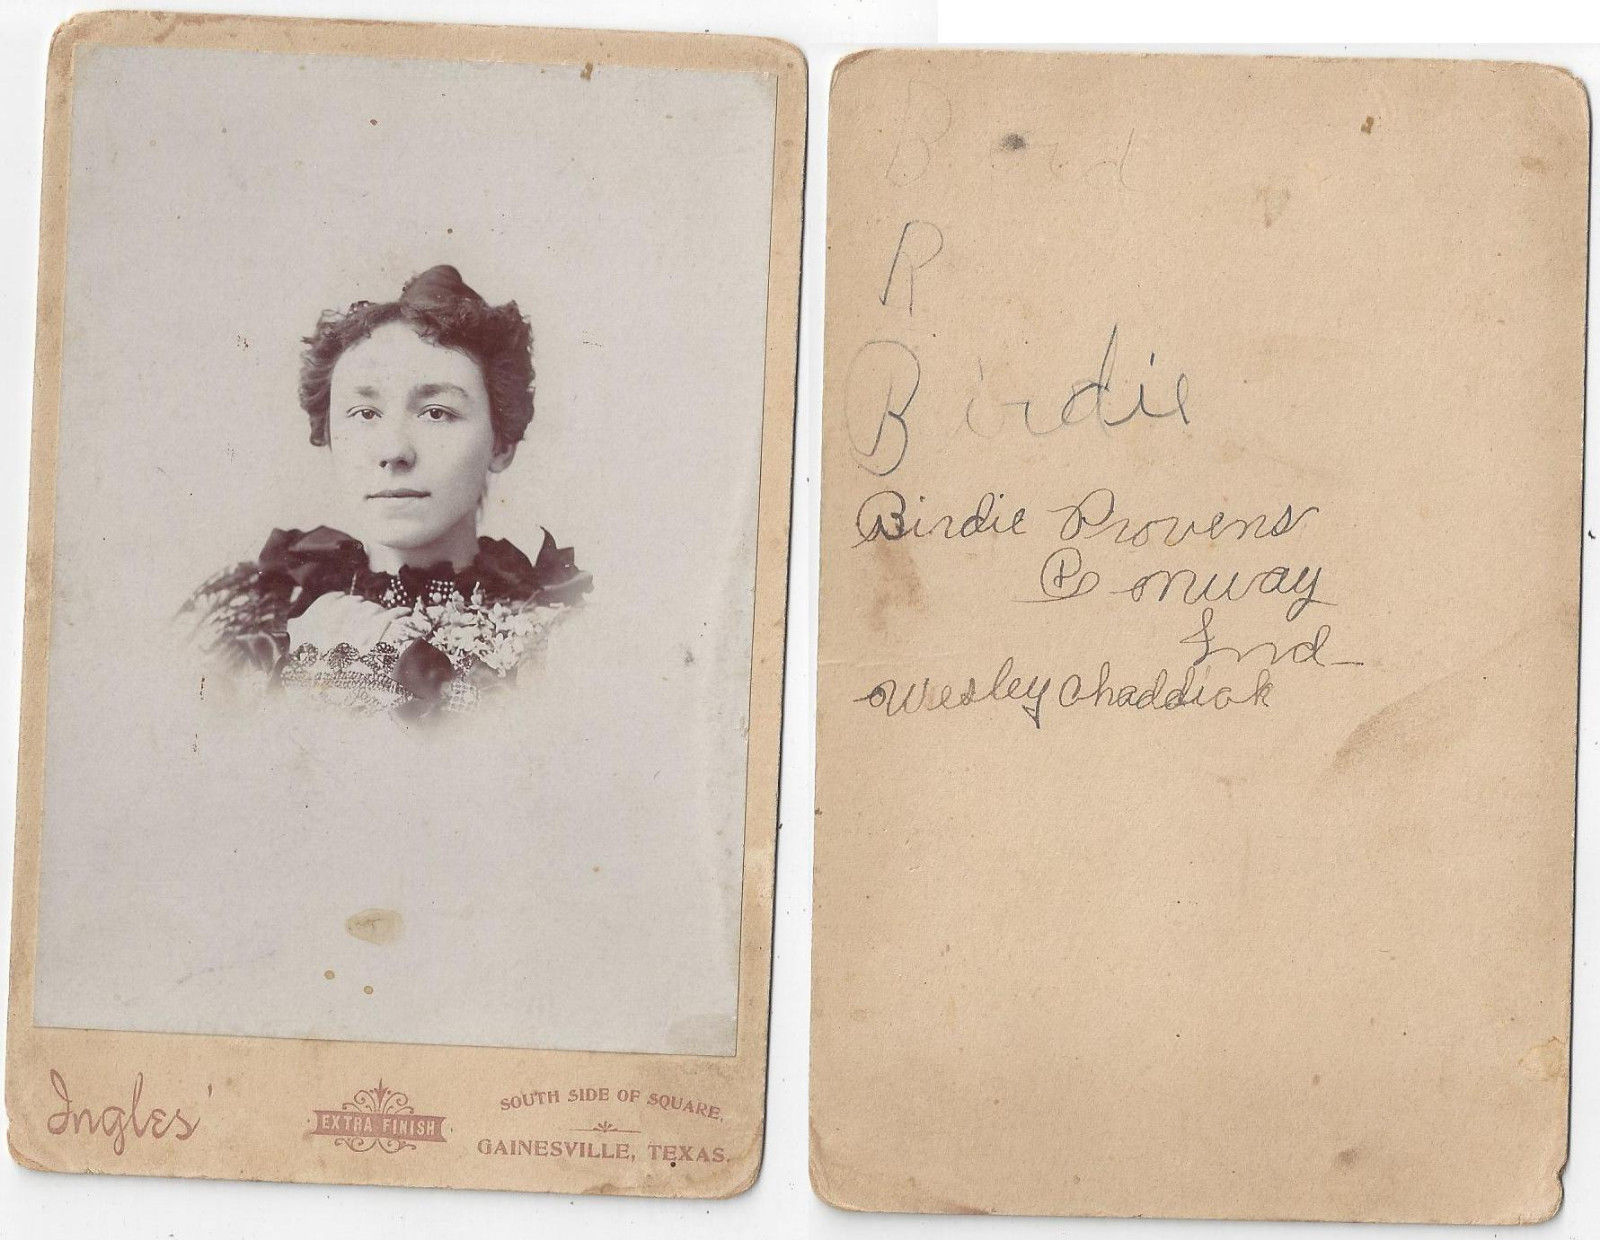 Ingles'
EXTRA FINISH
SOUTH SIDE OF SQUARE,
GAINESVILLE, TEXAS.
B rd
R
Birdie
Birdie Provens
Conway
Ind
Wesley Chaddick